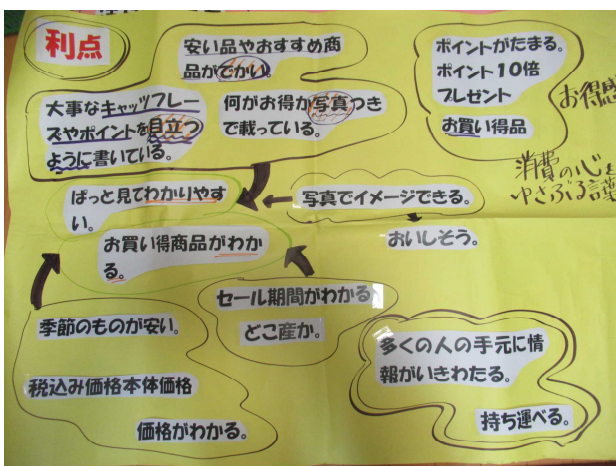 利点
安い品やおすすめ商
品がでかい。
大事なキャッツフレー
ズやポイントを目立つ
ように書いている。
何がお得か写真つき
で載っている。
ポイントがたまる。
ポイント10倍
プレゼント
お買い得品
お得感
消費の心を
ゆさぶる言葉
ぱっと見てわかりやす
い。
お買い得商品がわか
る。
写真でイメージできる。
おいしそう。
セール期間がわかる
どこ産か。
季節のものが安い。
税込み価格本体価格
価格がわかる。
多くの人の手元に情
報がいきわたる。
持ち運べる。